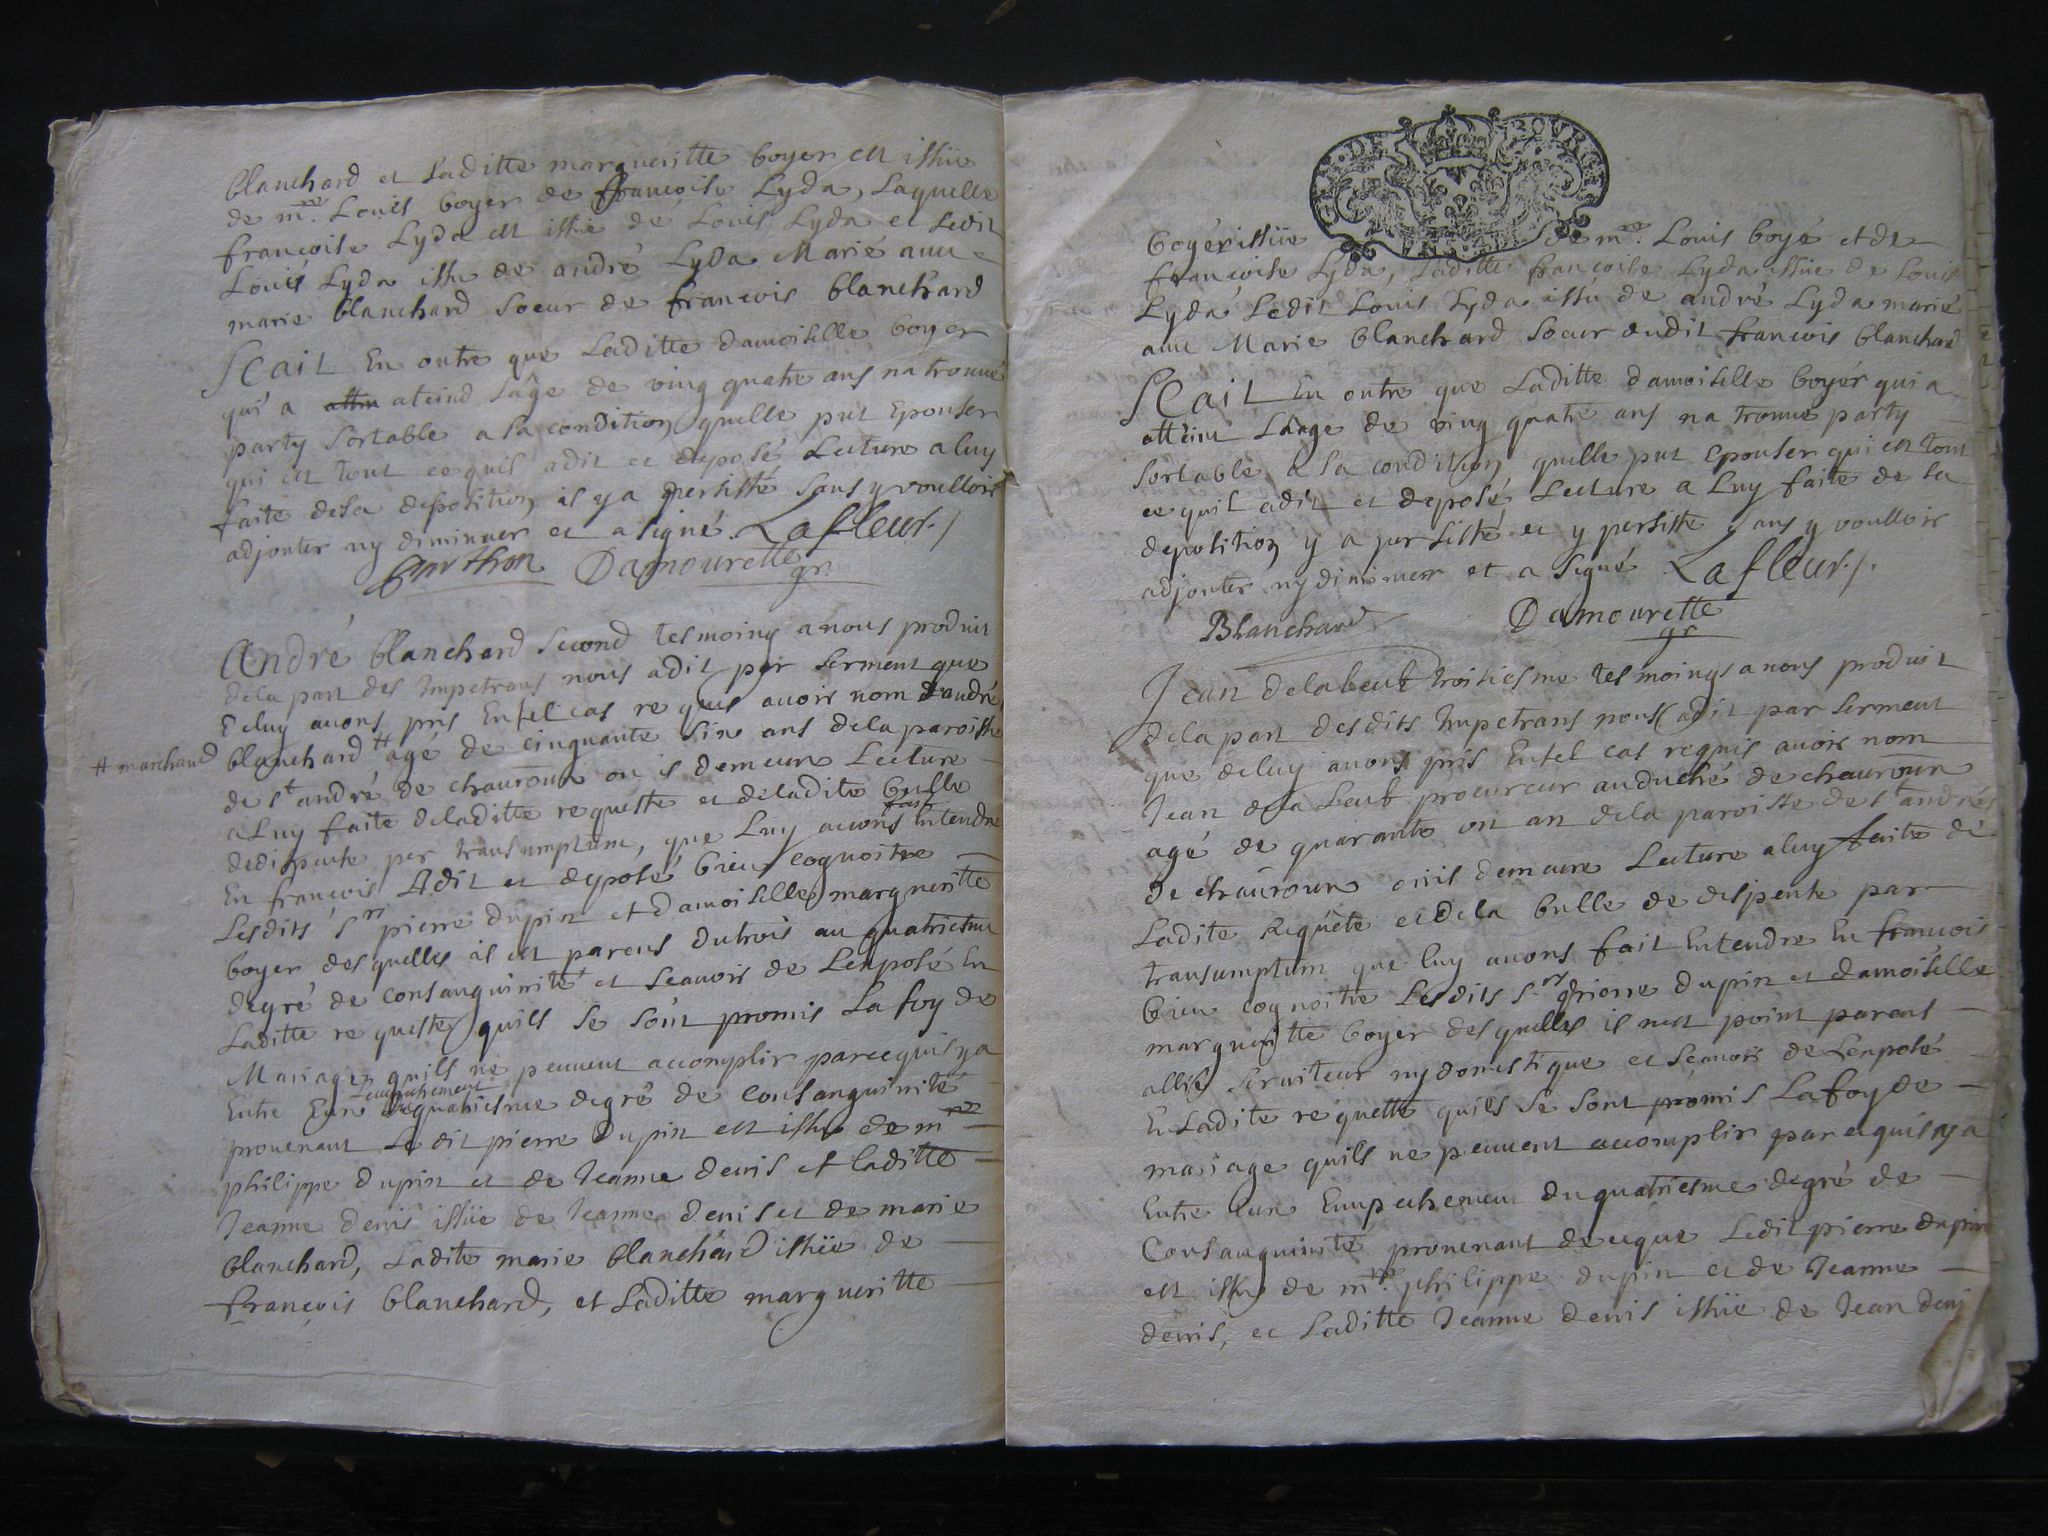 blanchard et Laditte margueritte boyer est issüe
de m.re Louis boyer de francoise Lyda, Laquelle
francoise Lyda est issüe de Louis Lyda et Ledit
Louis Lyda issu de andré Lyda Marié avec
marie blanchard soeur de francois blanchard
Scait En outre que Laditte damoiselle boyer
qui a attin ateind lâge de ving quatre ans na trouvé
party sortable a sa condition quelle put Epouser
qui est tout ce quil adit et deposé Lecture a luy
faite desa deposition il y a persisté sans y voulloir
adjouter ny diminuer et a signé Lafleur
Damourette
gr.
André blanchard second tesmoing a nous produit
dela part des Impetrans nous adit par serment que
deluy avons pris Entel cas requis avoir nom dandré
# marchand
blanchard # agé de cinquante six ans dela paroisse
de st andré de chauroux ou il demeure Lecture
a Luy faite deladitte requeste et deladite bulle
dedispente per transumptum, que Luy avons fait Entendre
En francois Adit et deposé bien cognoitre
Lesdits sr pierre dupin et damoiselle margueritte
boyer desquelles il est parens dutrois au quatriesme
degré de consanguinité et scavoir de Lexposé En
Laditte requeste quils se sont promis La foy de
Mariage quils ne peuvent accomplir parcequil ya
Entre Eux Lempechement du quatriesme degré de consanguinité
provenant Ledit pierre dupin est issu de m.re
philippe dupin et de Jeanne denis et laditte
Jeanne denis issüe de Jeanne denis et de marie
blanchard, Ladite marie blanchard issüe de
francois blanchard, et Laditte margueritte
boyer issüe de m.re Louis boyé et de
francoise Lyda, Laditte francoise Lyda issüe de Louis
Lyda Ledit Louis Lyda issu de andré Lyda marié
avec Marie blanchard soeur dudit francois blanchard
Scait En outre que Laditte damoiselle boyér qui a
atteint Lhage de ving quatre ans na trouvé party
sortable a sa condition quelle put epouser qui est tout
ce quil adit et deposé Lecture a Luy faite de sa
deposition y a persisté et y persiste sans y voulloir
adjouter ny diminuer et a signé Lafleur
Blanchard Damourette
gr
Jean delabeut troisiesme tesmoings a nous produit
dela part desdits Impetrans nous adit par serment
que deluy avons pris Entel cas requis avoir nom
Jean dela beut procureur auduché de chauroux
agé de quarante un an dela paroisse de st andrés
de chauroux ou il demeure Lecture aluy faite de
Ladite Requête et dela bulle de dispente par
transumptum que luy avons fait Entendre En francois
bien cognoitre Lesdits sr pierre dupin et damoiselle
margueritte boyer desquelles il nest point parens
allié serviteur ny domestique et scavoir de Lexposé
En Ladite requette quils se sont promis La foy de
mariage quils ne peuvent accomplir parcequil ya
Entre Eux Empechement du quatriesme degré de
Consanguinité provenant de ceque Ledit pierre dupin
est issu de m.re philippe dupin et de Jeanne
denis, et Laditte Jeanne denis issüe de Jean deni